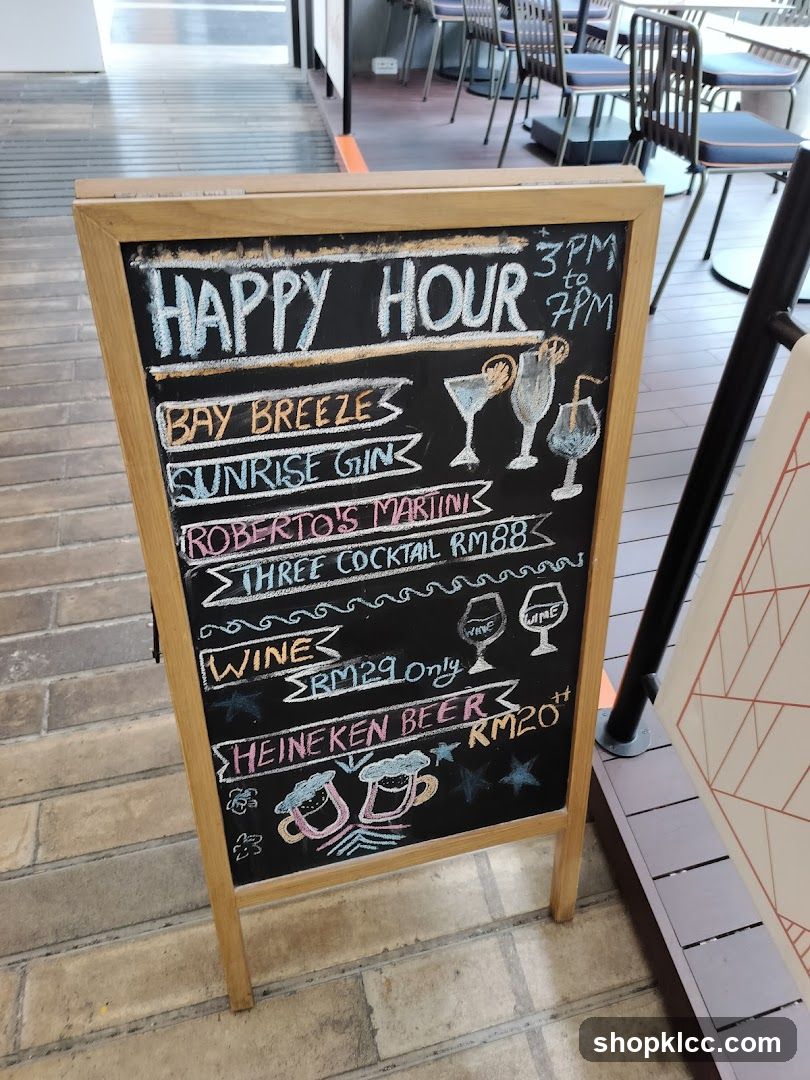 HAPPY HOUR
3PM
to
7PM
BAY BREEZE
SUNRISE GIN
ROBERTO'S MARTINI
THREE COCKTAIL RM88
WINE
WINE
WINE
RM29 Only
HEINEKEN BEER
RM20++
shopklcc.com